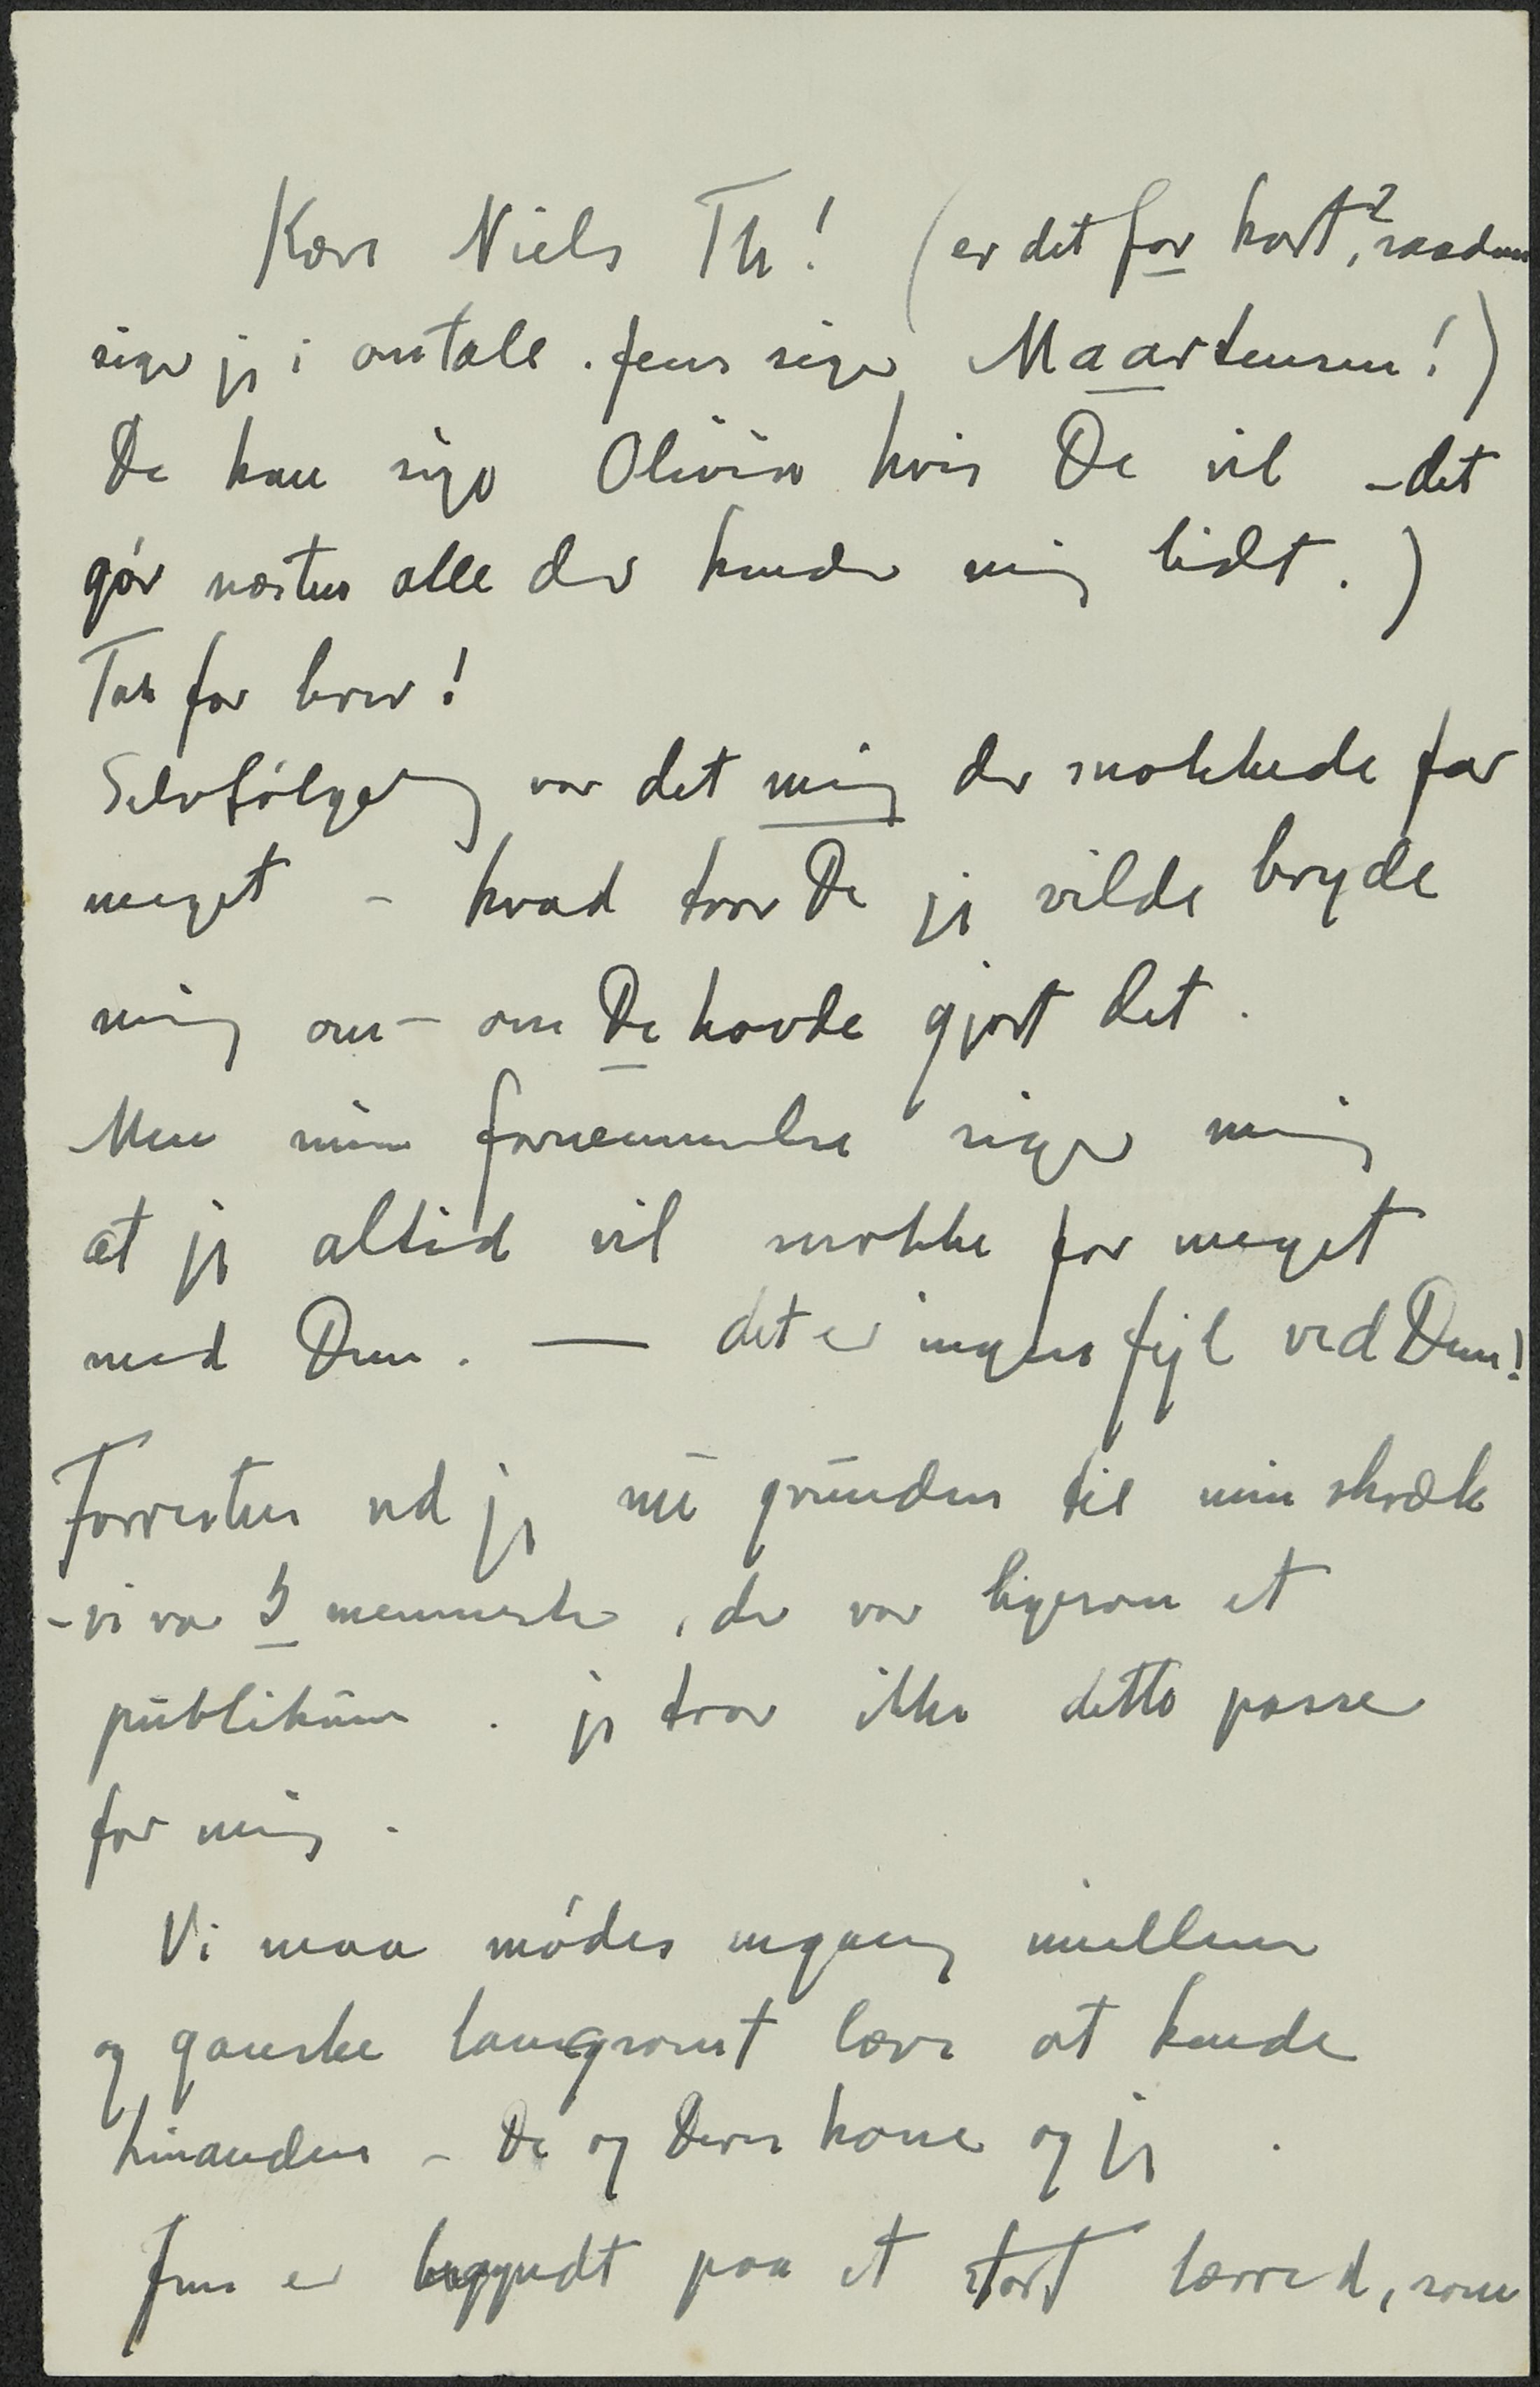 Kære Niels Th! (er det for kort?, saadan
siger jeg i omtale. Jens siger Maartensen!)
De kan sige Olivia hvis De vil – det
gör næsten alle der kender mig lidt.)
Tak for brev!
Selvfölgelig var det mig der snakkede for
meget – hvad tror De jeg vilde bryde
mig om – om De havde gjort det.
Men min fornemmelse siger mig
at jeg altid vil snakke for meget
med Dem. — det er ingen fejl ved Dem!
Forresten ved jeg nu grunden til min skræk
– vi var 5 mennesker, der var ligesom et
publikum. jeg tror ikke dette passer
for mig.
Vi maa mödes engang imellem
og ganske langsomt lære at kende
hinanden – De og Deres kone og jeg.
Jens er begyndt paa et stort lærred, som